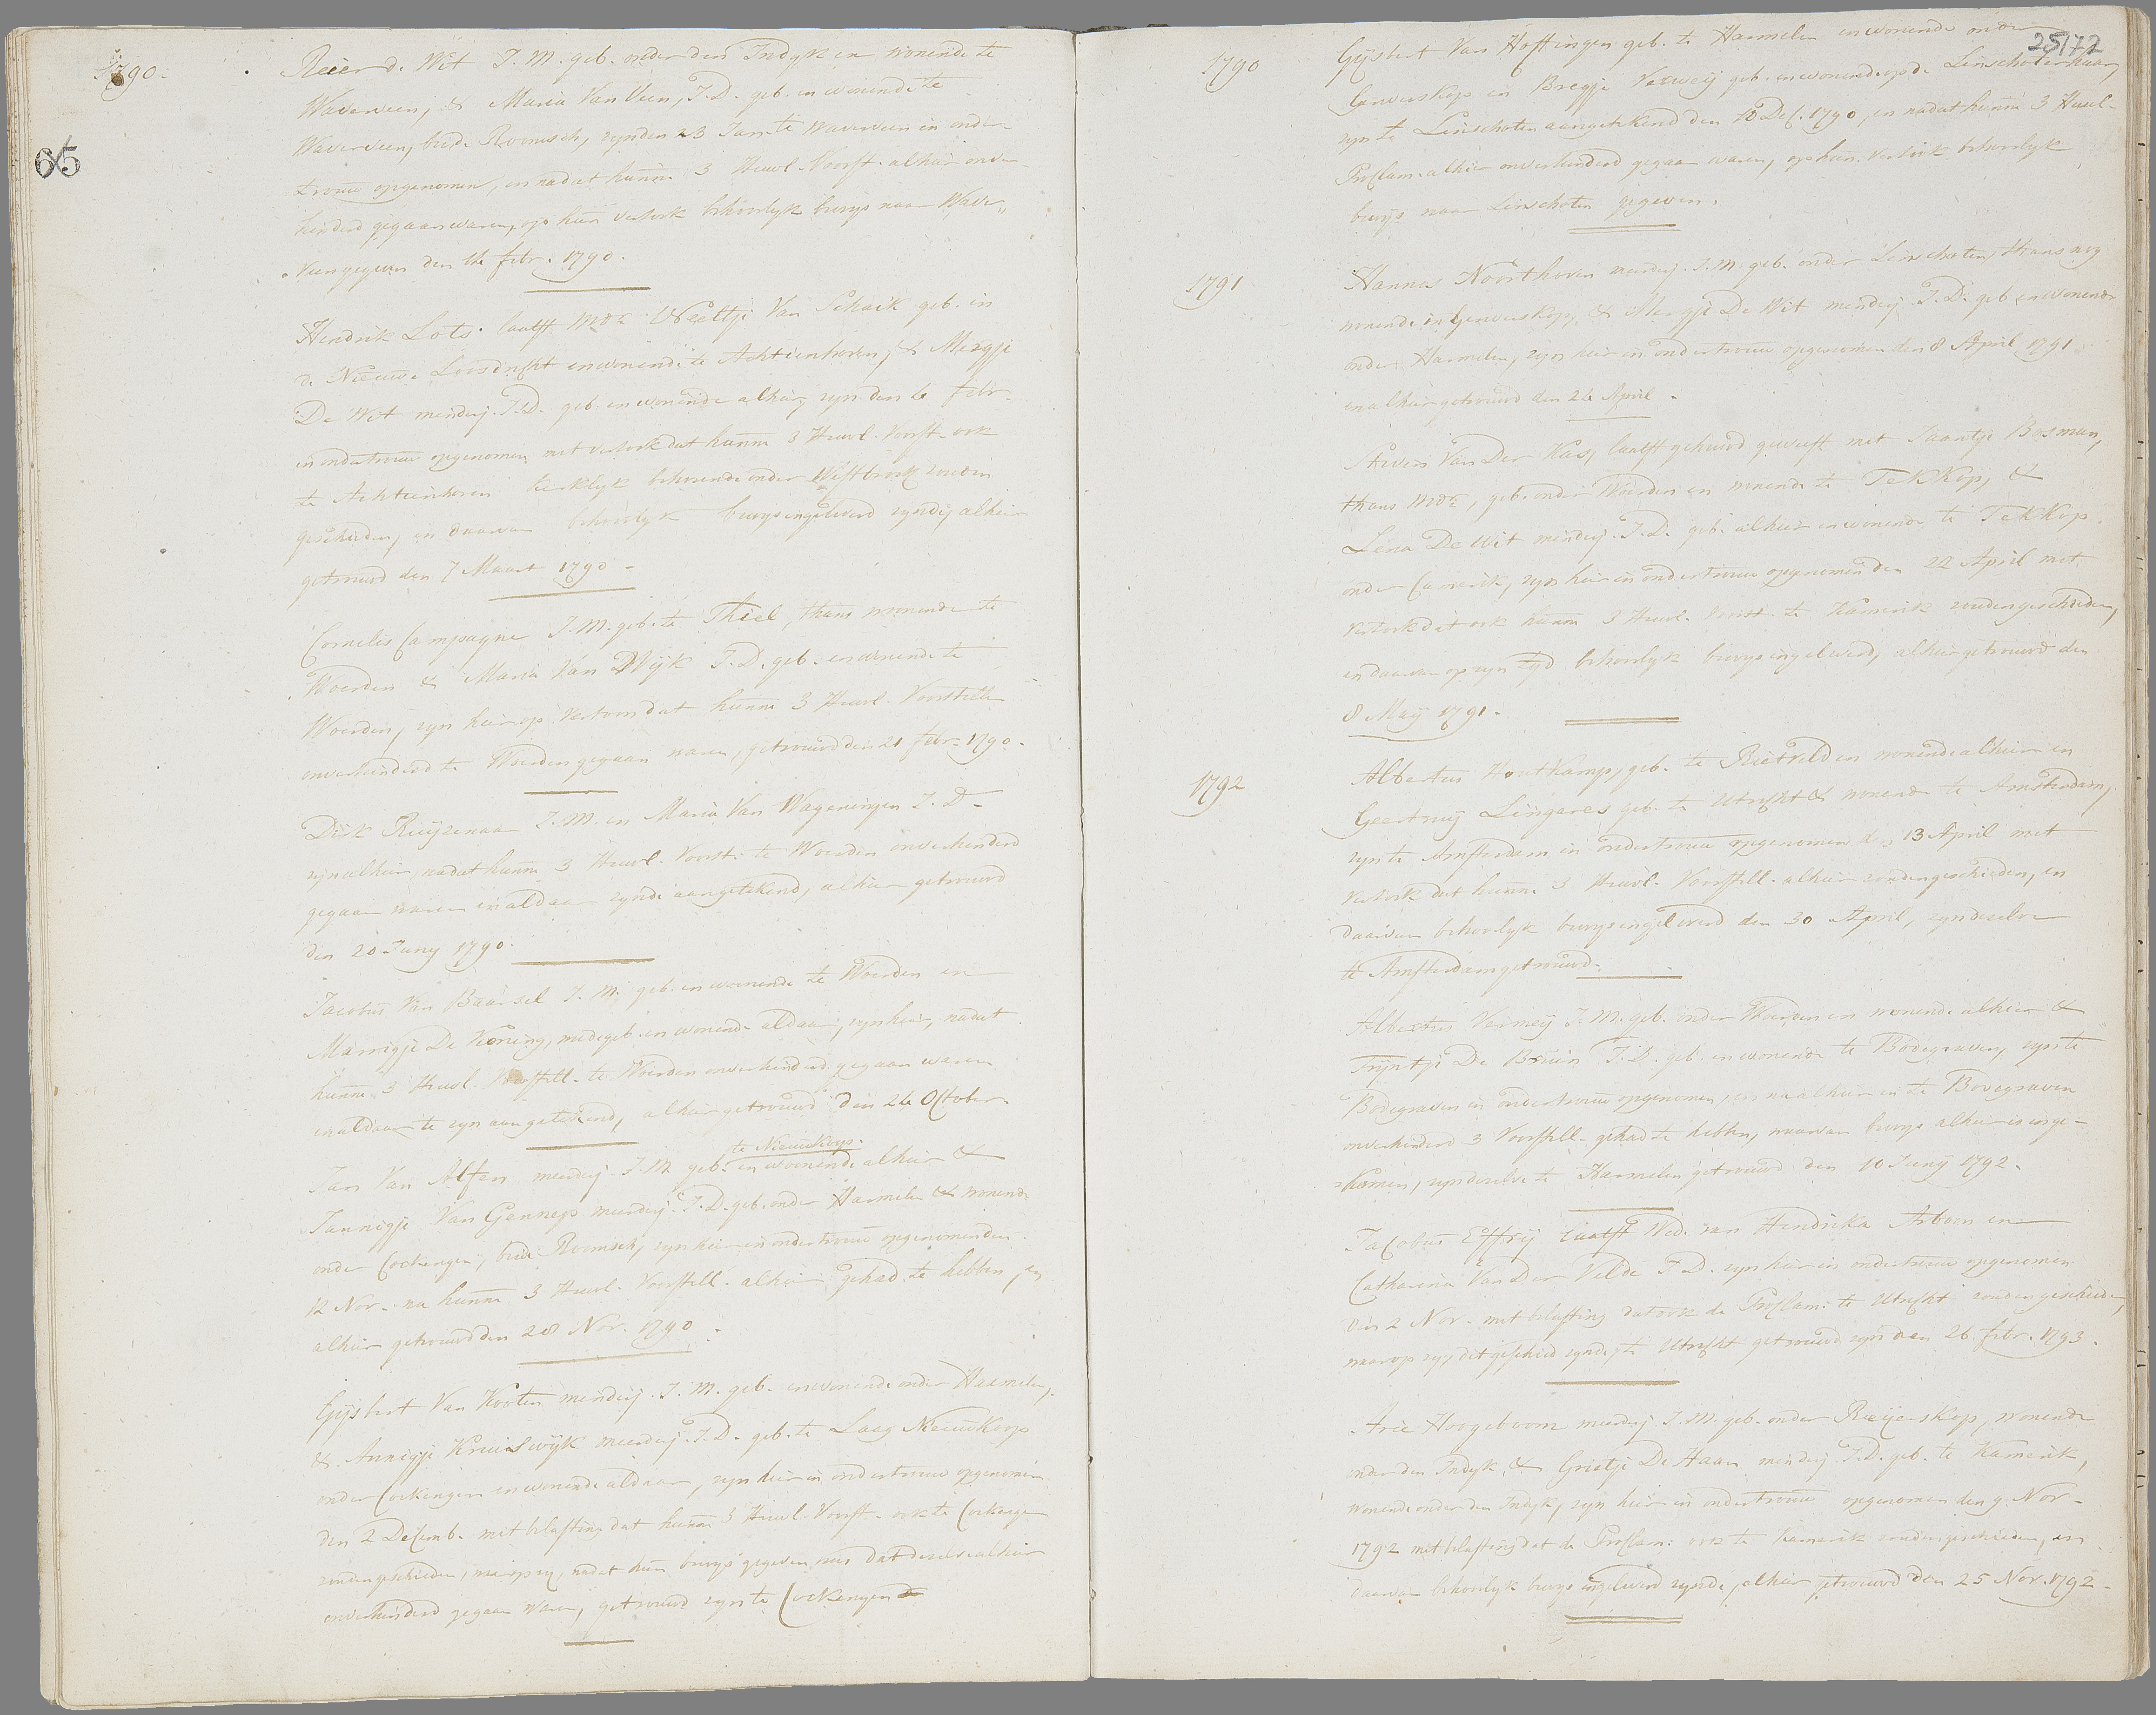 1790.
65
Reier d. Wit J. M. geb. onder den Indyk en wonende te
Waverveen, & Maria Van Veen, J. D. geb. en wonende te
Waverveen, beide Roomsch, zyn den 23 Jan. te Waverveen in onder-
trouw opgenomen, en nadat hunne 3 Huwl. Voorst. alhier onver-
hinderd gegaan waren, op hun versoek behoorlyk bewys naar Waver„
veen gegeven den 14 febr. 1790.
Hendrik Lots laatst Wedr. Weeltje Van Schaik geb. in
de Nieuwe Loosdrecht en wonende te Achtienhoven, & Mergje
De Wit minderj. J. D. geb. en wonende alhier, zyn den 6 febr.
in ondertrouw opgenomen met versoek dat hunne 3 Huwl. Voorst. ook
te Achtienhoven kerklyk behorende onder Westbroek zouden
geschieden, en daarvan behoorlyk bewys ingeleverd zynde, alhier
getrouwd den 7 Maart 1790.
Cornelis Campagne J. M. geb. te Thiel, thans wonende te
Woerden & Maria Van Dyk J. D. geb. en wonende te
Woerden, zyn hier op vertoon dat hunne 3 Huwl. Voorstell
onverhinderd te Woerden gegaan waren, getrouwd den 21 febr. 1790.
Dirk Ruijzenaar J. M. en Maria Van Wageningen J. D.
zyn alhier, nadat hunne 3 Huwl. Voorst. te Woerden onverhinderd
gegaan waren en aldaar zynde aangetekend, alhier getrouwd
den 20 Juny 1790.
Jacobus Van Baarsel J. M. geb. en wonende te Woerden en
Marrigje De Koning, mede geb. en wonende aldaar, zyn hier, nadat
hunne 3 Huwl. Voorstell. te Woerden onverhinderd gegaan waren
en aldaar te zyn aangetekend, alhier getrouwd den 24 October
te Nieuwkoop.
Jan Van Alfen meerderj. J. M. geb. en wonende alhier &
Jannigje Van Gennep meerderj. J. D. geb. onder Harmelen & wonende
onder Cockengen, beide Roomsch, zyn hier in ondertrouw opgenomen den
12 Nov. na hunne 3 Huwl. Voorstell. alhier gehad te hebben, en
alhier getrouwd den 28 Nov. 1790.
Gysbert Van Kooten minderj. J. M. geb. en wonende onder Harmelen,
& Annigje Kruiswyk meerderj. J. D. geb. te Laag Nieuwkoop
onder Cockengen en wonende aldaar, zyn hier in ondertrouw opgenomen
den 2 Decemb. met belasting dat hunne 3 Huwl. Voorst. ook te Cockengen
zouden geschieden, waarop zy, nadat hun bewys gegeven was dat dezelve alhier
onverhinderd gegaan waren, getrouwd zyn te Cockengen
25172
1790
Gysbert Van Hoffingen geb. te Harmelen en wonende onder
Gerverskop en Bregje Verweij geb. en wonende op de Linschoterhaar,
zyn te Linschoten aangetekend den 10 Dec. 1790, en nadat hunne 3 Huwl.
Proclam. alhier onverhinderd gegaan waren, op hun versoek behoorlyk
bewys naar Linschoten gegeven.
1791
Hannes Noorthoven meerderj. J. M. geb. onder Linschoten, thans nog
wonende in Gerverskop, & Mergje De Wit minderj. J. D. geb. en wonende
onder Harmelen, zyn hier in ondertrouw opgenomen den 8 April 1791
en alhier getrouwd den 24 April.
Steven Van Der Kas, laatst gehuwd geweest met Jaantje Bosman,
thans Wedr., geb. onder Woerden en wonende te Tekkop, &
Lena De Wit minderj. J. D. geb. alhier en wonende te Tekkop
onder Camerik, zyn hier in ondertrouw opgenomen den 22 April met
versoek dat ook hunne 3 Huwl. Voorst. te Kamerik zouden geschieden,
en daarvan op zyn tyd behoorlyk bewys ingeleverd, alhier getrouwd den
8 May 1791.
1792
Albertus Houtkamp, geb. te Rietveld en wonende alhier en
Geertruy Lingeres geb. te Utrecht & wonende te Amsterdam,
zyn te Amsterdam in ondertrouw opgenomen d. 13 April met
versoek dat hunne 3 Huwl. Voorstell. alhier zouden geschieden, en
daarvan behoorlyk bewys ingeleverd den 30 April, zyn dezelve
te Amsterdam getrouwd.
Albertus Vermeij J. M. geb. onder Woerden en wonende alhier &
Tryntje De Bruin J. D. geb. en wonende te Bodegraven, zyn te
Bodegraven in ondertrouw opgenomen, en na alhier en te Bodegraven
onverhinderd 3 Voorstell. gehad te hebben, waarvan bewys alhier is inge-
komen, zyn dezelve te Harmelen getrouwd den 10 Juny 1792.
Jacobus Effrij laatst Wed. van Hendrika Arboen en
Catharina Van Der Velde J. D. zyn hier in ondertrouw opgenomen
den 2 Nov. met belasting dat ook de Proclam: te Utrecht zouden geschieden,
waarop zy, dit geschied zynde, te Utrecht getrouwd zyn den 26 febr. 1793.
Arie Hoogeboom meerderj. J. M. geb. onder Reijerskop, wonende
onder den Indyk, & Grietje De Haan minderj. J. D. geb. te Kamerik,
wonende onder den Indyk, zyn hier in ondertrouw opgenomen den 9 Nov.
1792 met belasting dat de Proclam: ook te Kamerik zouden geschieden, en
daarvan behoorlyk bewys ingeleverd zynde, alhier getrouwd den 25 Nov. 1792.